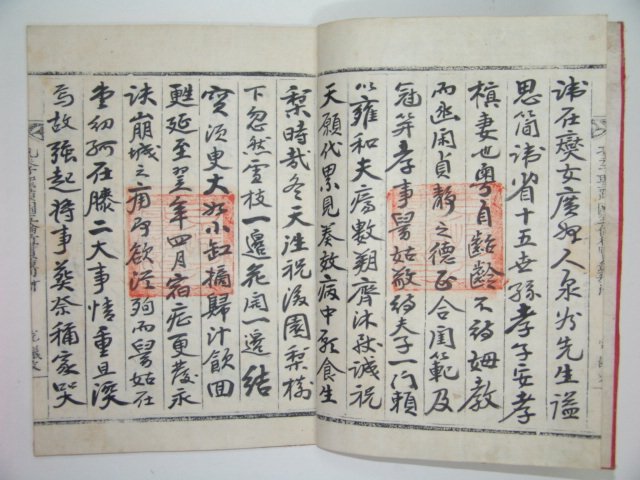 諱在燮女廣州人泉谷先生諡
思簡諱省十五世孫孝子安孝
槙妻也粤自齠齡不待姆敎
而幽閑貞靜之德正合閨範及
冠笄孝事舅姑敬待夫子一門賴
以雍和夫病數朔齊沐默誠祝
天願代累見奏效病中願食生
梨時哉冬天泣祝後園梨樹
下忽然雪枝一邊花開一邊結
實須臾大如小缸摘歸汁飮回
甦延至翌年四月宿症更發永
訣崩城之痛即欲從殉而舅姑在
堂幼孤在膝二大事情重且深
焉故强起將事葬奈稱家哭